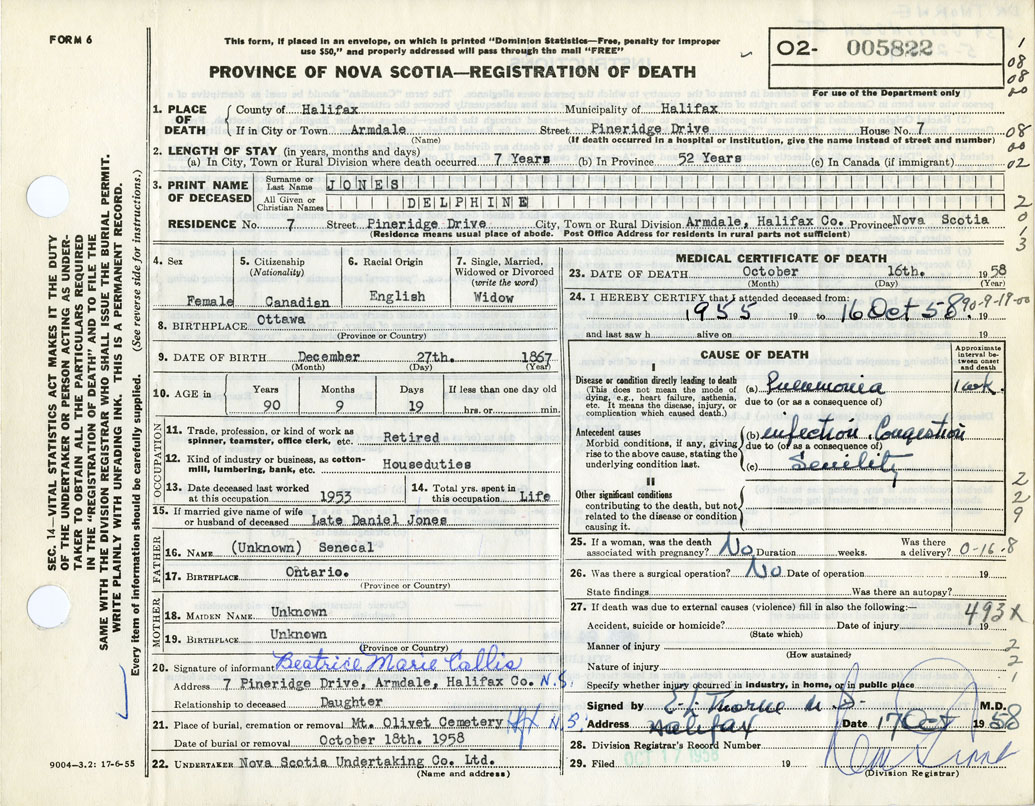 FORM 6
This form, if placed in an envelope, on which is printed "Dominion Statistics—Free, penalty for improper
use $50," and properly addressed will pass through the mail "FREE"
PROVINCE OF NOVA SCOTIA—REGISTRATION OF DEATH
02- 005822
For use of the Department only
1. PLACE OF DEATH
County of Halifax Municipality of Halifax
If in City or Town Armdale Street Pineridge Drive House No. 7
(Name) (If death occurred in a hospital or institution, give the name instead of street and number)
2. LENGTH OF STAY (in years, months and days)
(a) In City, Town or Rural Division where death occurred 7 Years (b) In Province 52 Years (c) In Canada (if immigrant)
3. PRINT NAME OF DECEASED
Surname or Last Name JONES
All Given or Christian Names DELPHINE
RESIDENCE No. 7 Street Pineridge Drive City, Town or Rural Division Armdale, Halifax Co. Province Nova Scotia
(Residence means usual place of abode. Post Office Address for residents in rural parts not sufficient)
1
08
08
00
08
00
02
2
0
3
SEC. 14—VITAL STATISTICS ACT MAKES IT THE DUTY
OF THE UNDERTAKER OR PERSON ACTING AS UNDER-
TAKER TO OBTAIN ALL THE PARTICULARS REQUIRED
IN THE "REGISTRATION OF DEATH" AND TO FILE THE
SAME WITH THE DIVISION REGISTRAR WHO SHALL ISSUE THE BURIAL PERMIT.
WRITE PLAINLY WITH UNFADING INK. THIS IS A PERMANENT RECORD.
Every item of information should be carefully supplied. (See reverse side for instructions.)
4. Sex Female
5. Citizenship (Nationality) Canadian
6. Racial Origin English
7. Single, Married, Widowed or Divorced (write the word) Widow
8. BIRTHPLACE Ottawa
(Province or Country)
9. DATE OF BIRTH December 27th. 1867
(Month) (Day) (Year)
10. AGE in Years 90 Months 9 Days 19 If less than one day old hrs. or min.
OCCUPATION
11. Trade, profession, or kind of work as spinner, teamster, office clerk, etc. Retired
12. Kind of industry or business, as cotton-mill, lumbering, bank, etc. Houseduties
13. Date deceased last worked at this occupation 1953
14. Total yrs. spent in this occupation Life
15. If married give name of wife or husband of deceased Late Daniel Jones
FATHER
16. NAME (Unknown) Senecal
17. BIRTHPLACE Ontario.
(Province or Country)
MOTHER
18. MAIDEN NAME Unknown
19. BIRTHPLACE Unknown
(Province or Country)
20. Signature of informant Beatrice Marie Callis
Address 7 Pineridge Drive, Armdale, Halifax Co. N.S.
Relationship to deceased Daughter
21. Place of burial, cremation or removal Mt. Olivet Cemetery Hfx N.S.
Date of burial or removal October 18th. 1958
22. UNDERTAKER Nova Scotia Undertaking Co. Ltd.
(Name and address)
9004—3.2: 17-6-55
MEDICAL CERTIFICATE OF DEATH
23. DATE OF DEATH October 16th. 1958
(Month) (Day) (Year)
24. I HEREBY CERTIFY that I attended deceased from:
1955 19 to 16 Oct 58 19 90-9-19-00
and last saw h alive on 19
CAUSE OF DEATH
Approximate interval between onset and death
I
Disease or condition directly leading to death
(This does not mean the mode of dying, e.g., heart failure, asthenia, etc. It means the disease, injury, or complication which caused death.)
(a) Pneumonia 1 wk.
due to (or as a consequence of)
Antecedent causes
Morbid conditions, if any, giving rise to the above cause, stating the underlying condition last.
(b) infection, Congestion
due to (or as a consequence of)
(c) Senility
II
Other significant conditions
contributing to the death, but not related to the disease or condition causing it.
2
2
9
25. If a woman, was the death associated with pregnancy? No Duration weeks. Was there a delivery? 0-16-8
26. Was there a surgical operation? No Date of operation 19
State findings Was there an autopsy?
27. If death was due to external causes (violence) fill in also the following:— 493X
Accident, suicide or homicide? Date of injury 19
(State which)
Manner of injury 2
(How sustained)
Nature of injury 2
Specify whether injury occurred in industry, in home, or in public place 1
Signed by E. I. Thorne M.D. M.D.
Address Halifax Date 17 Oct 1958
28. Division Registrar's Record Number
29. Filed OCT 17 1958 19
(Division Registrar)